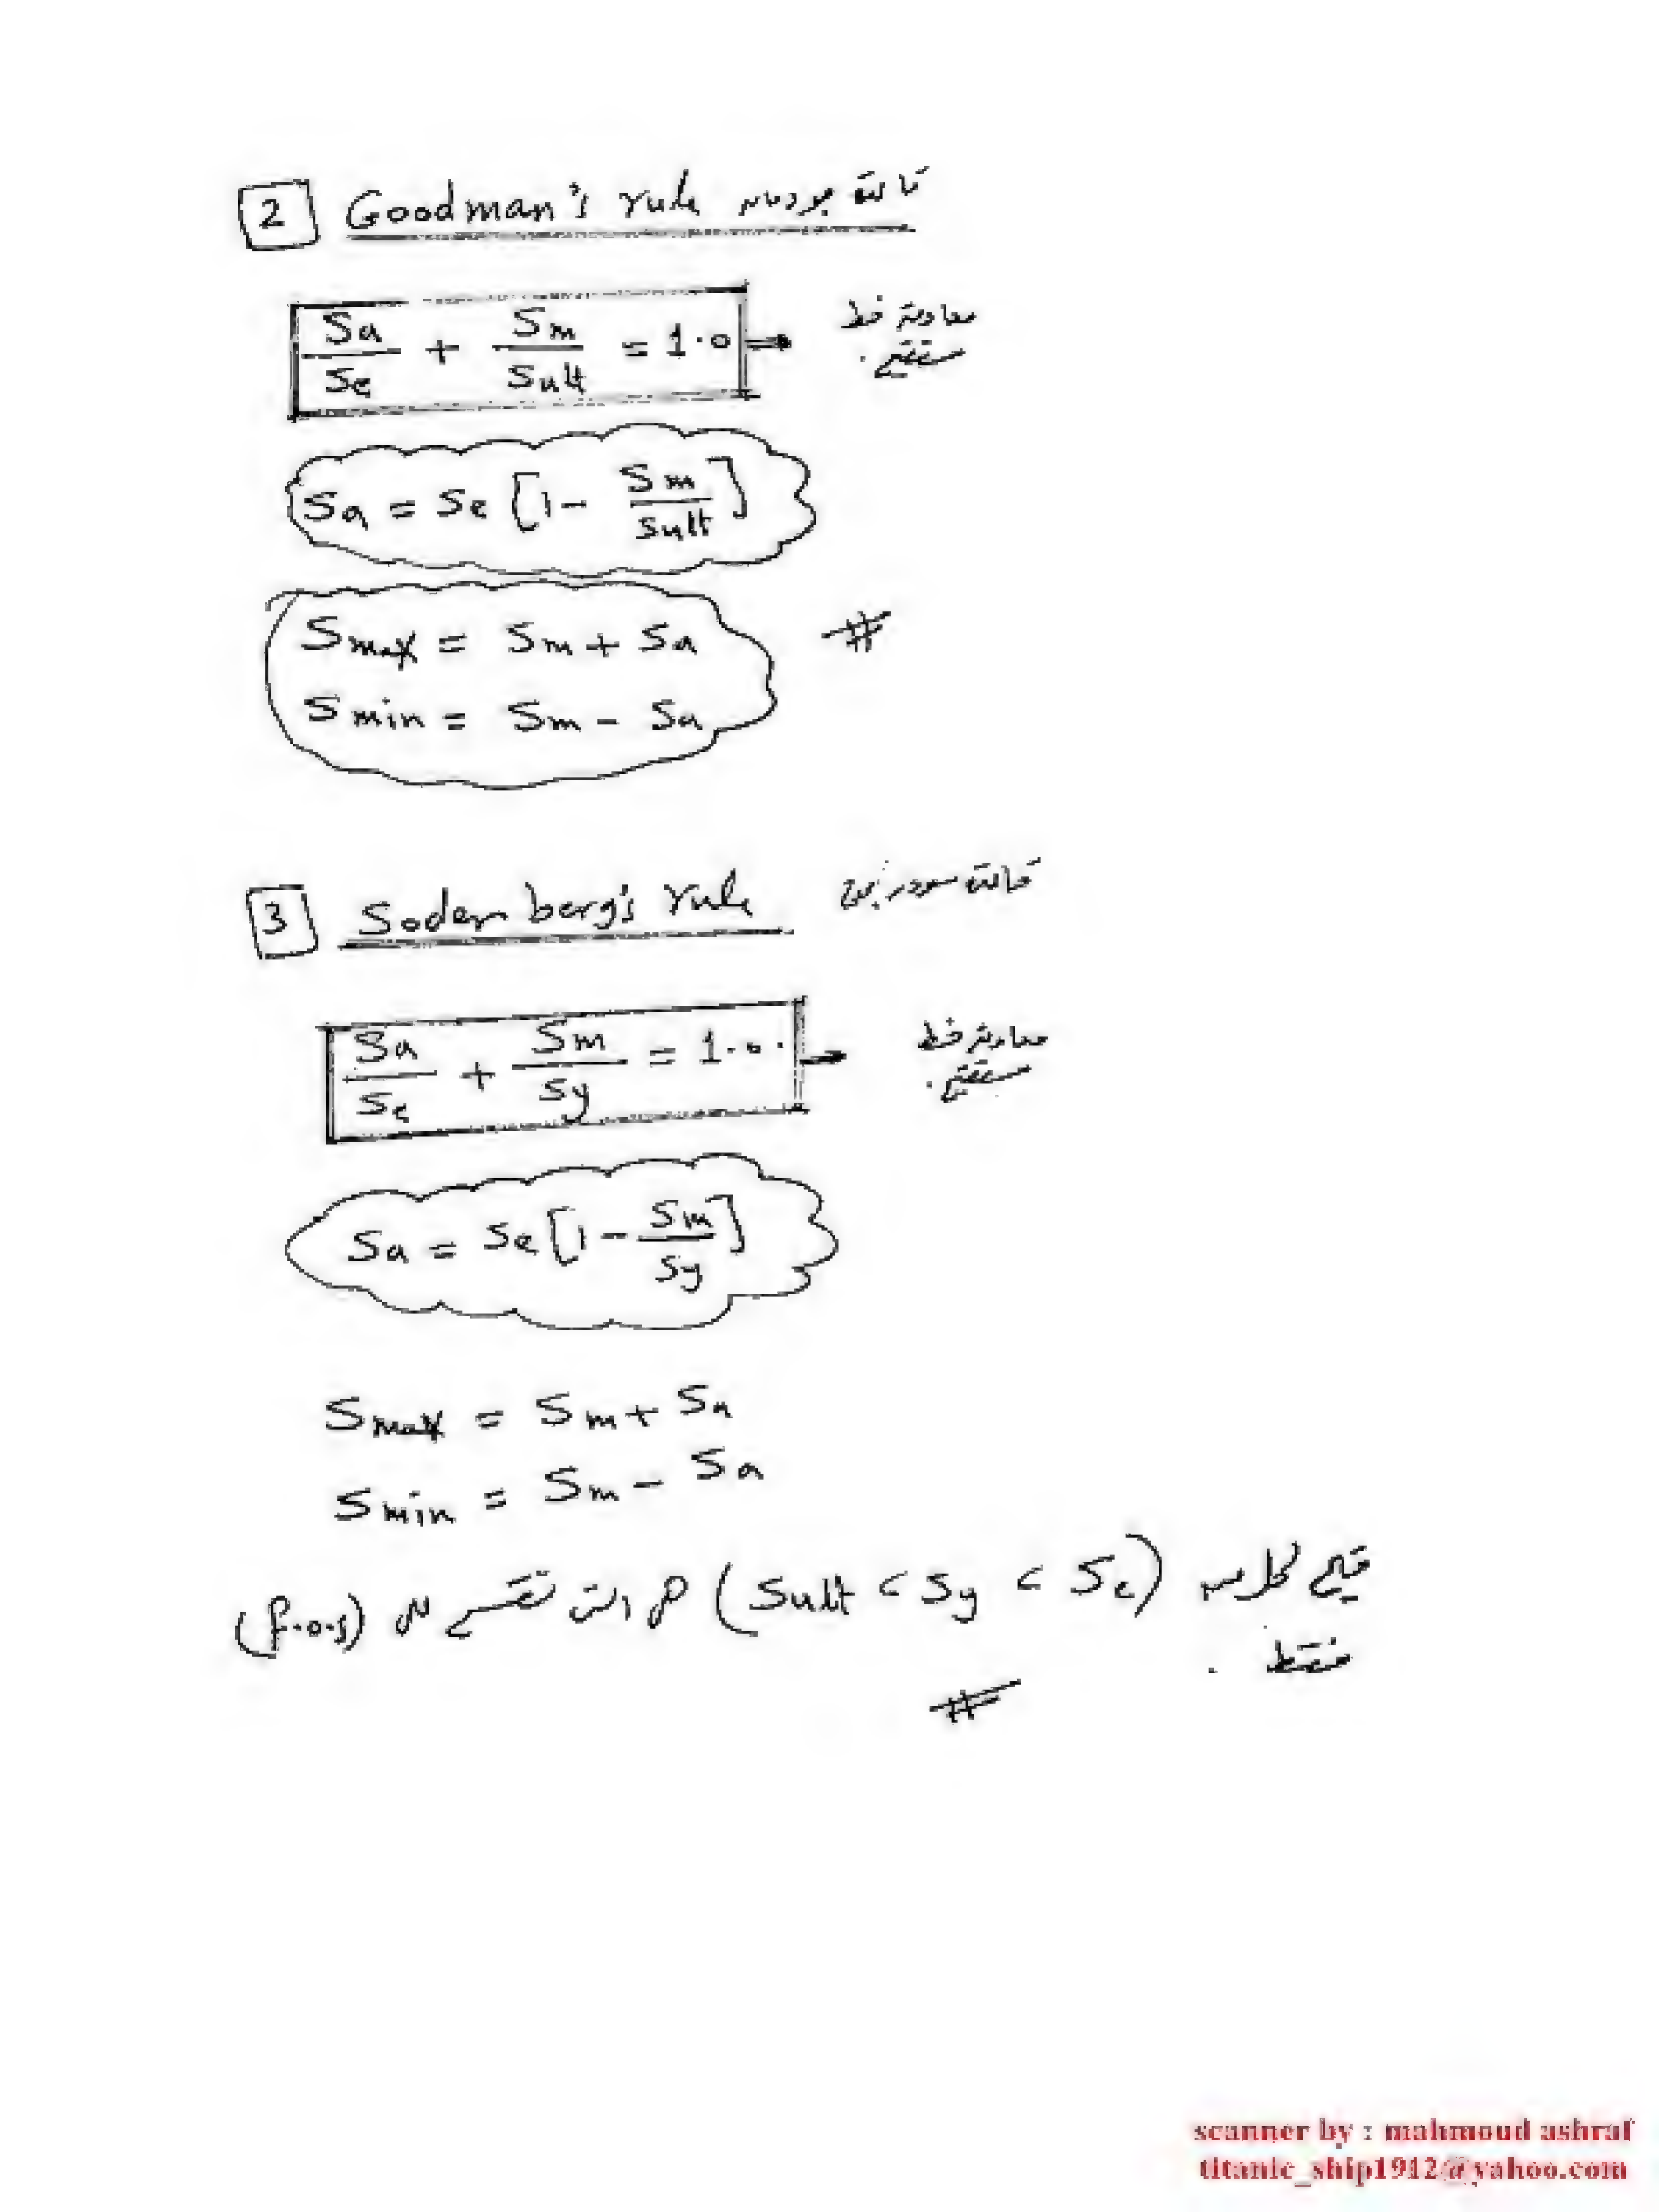 2 Goodman's rule قاعدة جودمان
Sa/Se + Sm/Sult = 1.0 → معادلة خط
مستقيم.
Sa = Se [1 - Sm/Sult]
Smax = Sm + Sa #
Smin = Sm - Sa
3 Soderberg's rule قاعدة سودربرج
Sa/Se + Sm/Sy = 1.0 → معادلة خط
مستقيم.
Sa = Se [1 - Sm/Sy]
Smax = Sm + Sa
Smin = Sm - Sa
قيم كلا من (Sult , Sy , Se) هى التى تقسم على (f.o.s)
فقط .
#
scanner by : mahmoud ashraf
titanic_ship1912@yahoo.com